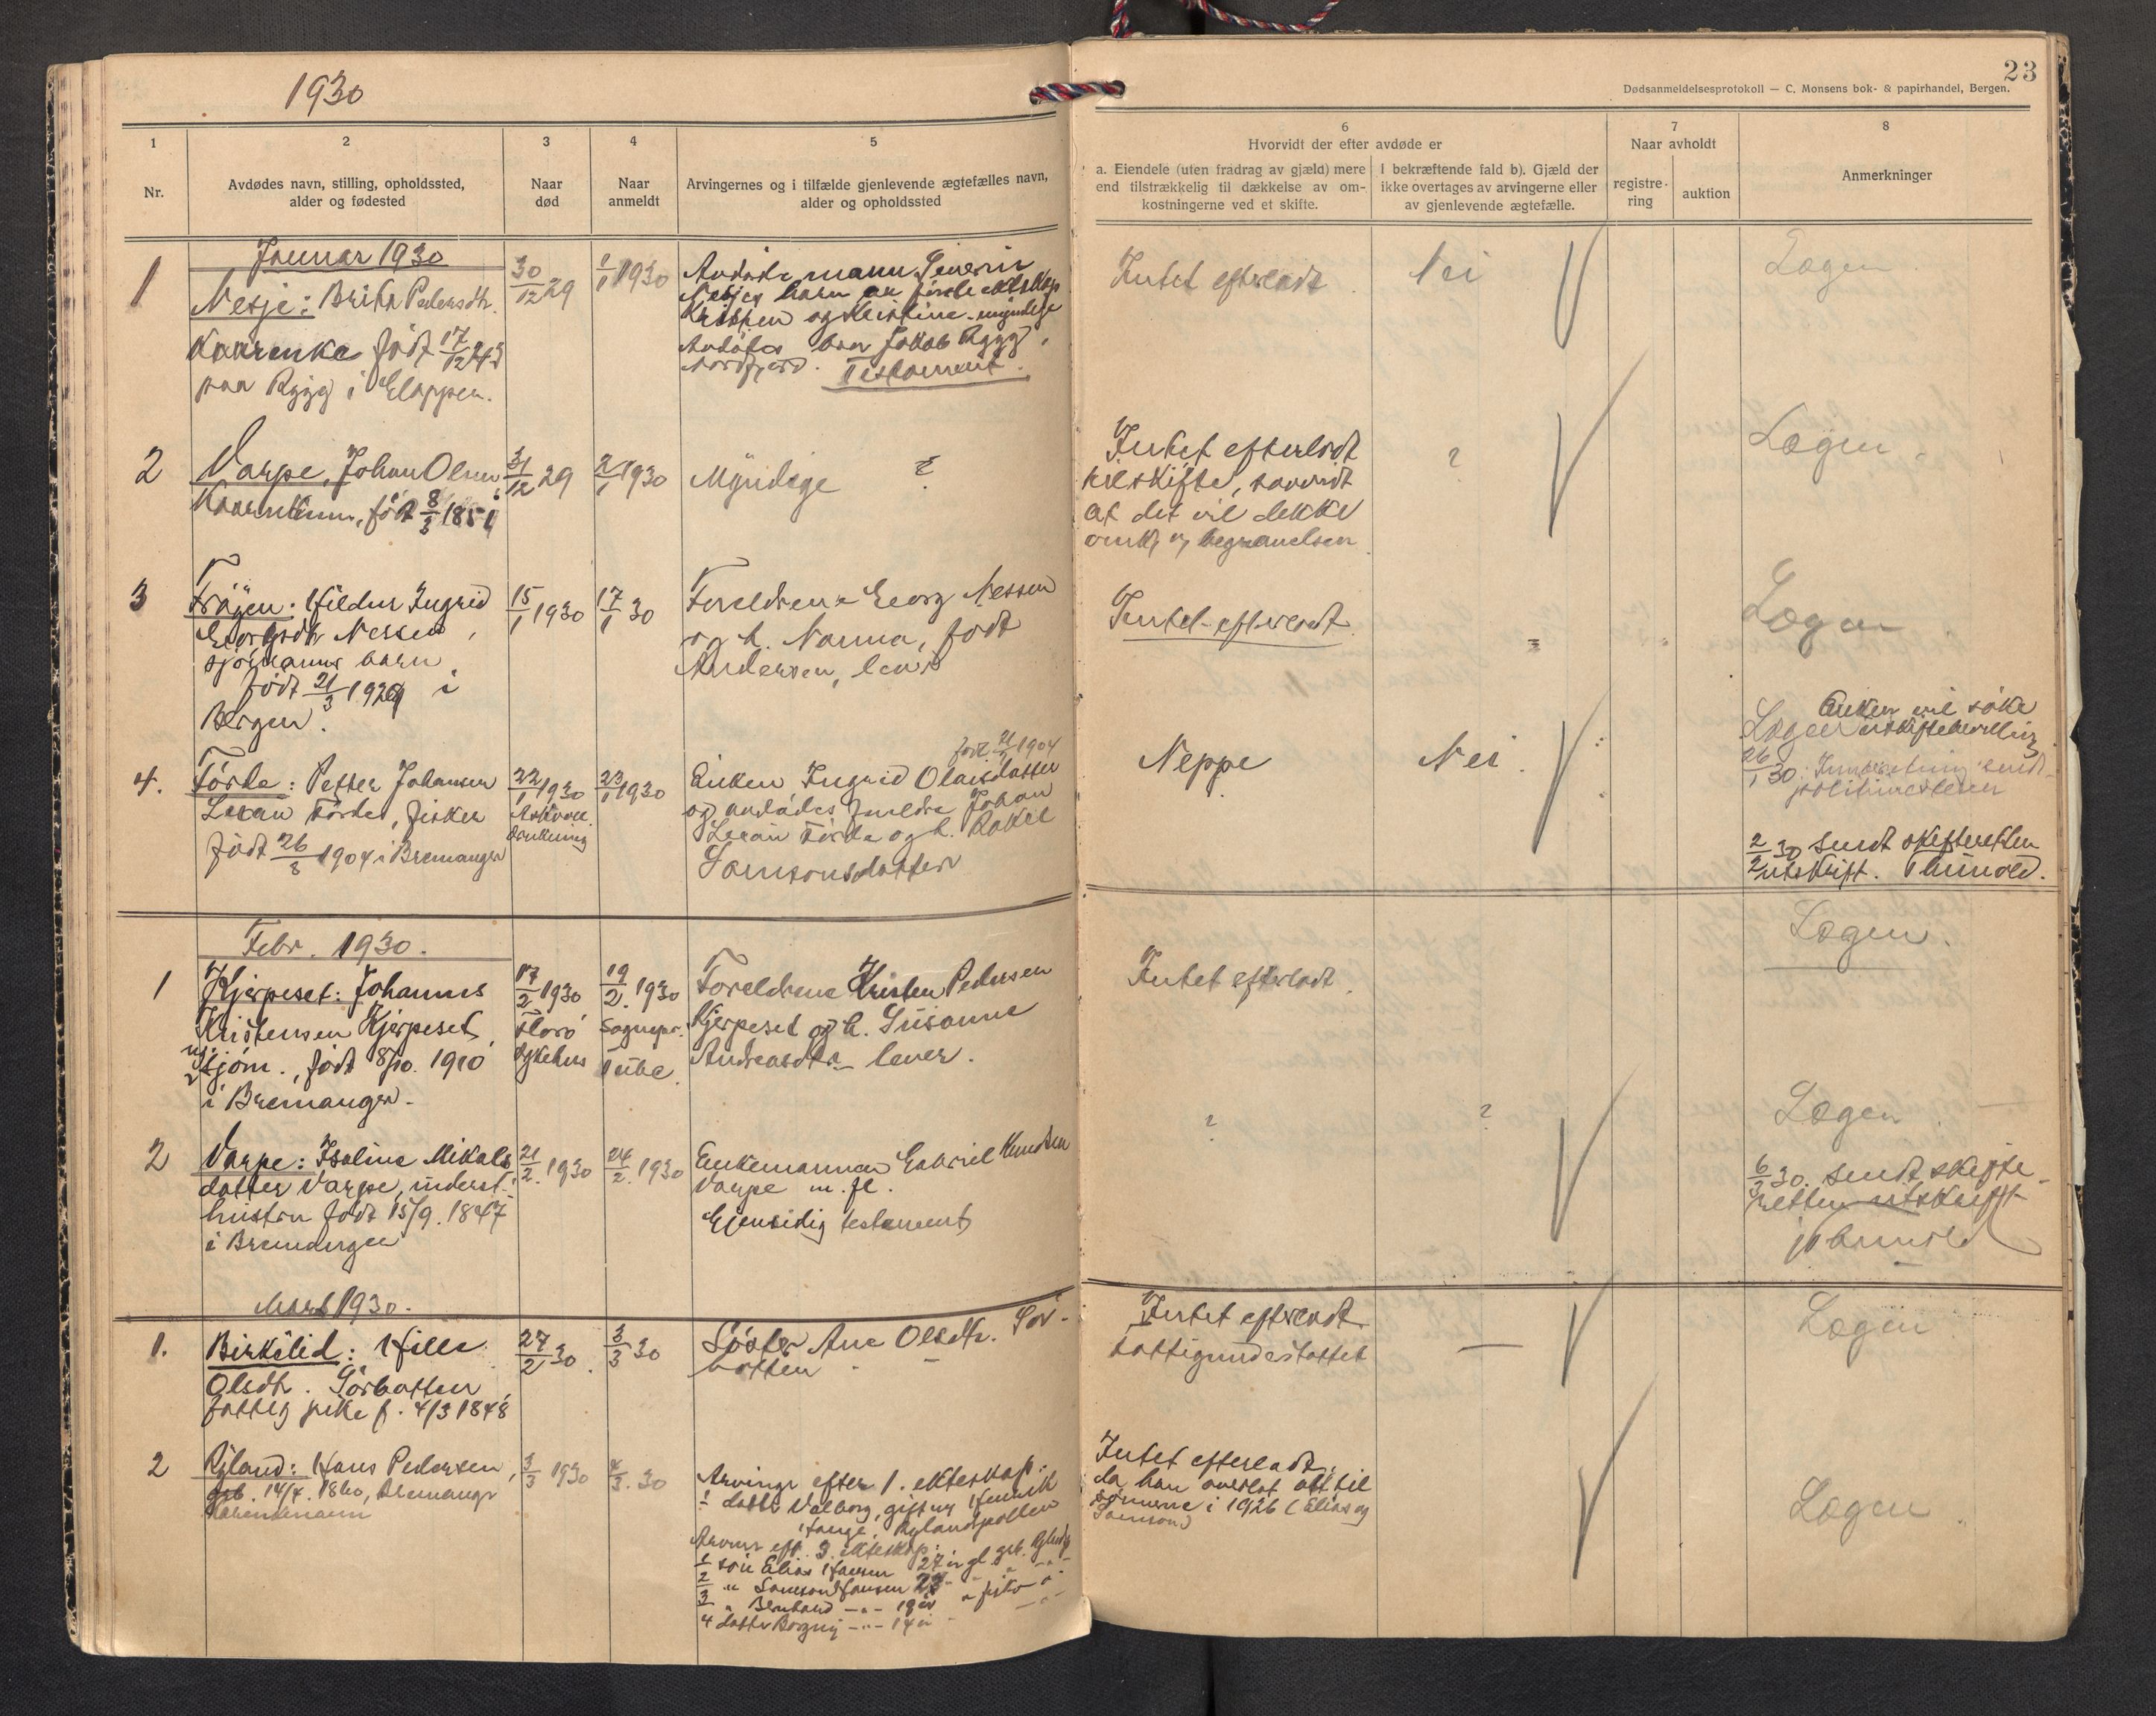 1930
23
Dødsanmeldelsesprotokoll — C. Monsens bok- & papirhandel, Bergen.
1
Nr.
2
Avdødes navn, stilling, opholdssted,
alder og fødested
3
Naar
død
4
Naar
anmeldt
5
Arvingernes og i tilfælde gjenlevende ægtefælles navn,
alder og opholdssted
6
Hvorvidt der efter avdøde er
a. Eiendele (uten fradrag av gjæld) mere
end tilstrækkelig til dækkelse av om-
kostningerne ved et skifte.
I bekræftende fald b). Gjæld der
ikke overtages av arvingerne eller
av gjenlevende ægtefælle.
7
Naar avholdt
registre-
ring
auktion
8
Anmerkninger
Januar 1930
1
Nesje: Brita Pedersdtr.
født 17/12 43
paa Rygg i Gloppen.
30/12 29
1/1 1930
mann
Nesje, barn av første
og Kristine - myndige
bror Jakob Rygg,
Nordfjord. Testament.
Intet efterladt.
Nei
Lægen.
2
Varpe, Johan Olsen
født 8/3 1851
31/12 29
2/1 1930
Myndige ?
Intet efterladt
til skifte,
at det vil dekke
omk. begravelsen
?
Lægen.
3
Frøyen: Hildur Ingrid
Georgsdtr Nessen,
sjømanns barn,
født 21/3 192 i
Bergen.
15/1 1930
17/1 30
Foreldrene Georg Nessen
og h. Nanna, født
Andersen, lever
Intet efterladt.
Lægen
4.
Førde: Petter Johansen
Førde, fisker
født 26/8 1904 i Bremanger
22/1 1930
drukning
23/1 1930
født 21/ 1904
Enken Ingrid Olaisdatter
og avdødes foreldre Johan
Førde og h. Rakel
Samsonsdatter
Neppe
Nei.
Enken vil søke
Lægen
26/1 30. sendt
politimesteren
2/2 30 sendt skifteretten
utskrift.
Febr. 1930.
1
Kjerpeset: Johannes
Kristensen Kjerpeset,
født 8/10. 1910
i Bremanger.
17/2 1930
Florø
sykehus
19/2. 1930
Sognepr.
Foreldrene Kristen Pedersen
Kjerpeset og h. Susanne
Andreasdtr lever.
Intet efterladt.
Lægen.
2
Varpe: Isaline Mikals
datter Varpe, underst.
hustru født 15/9. 1847
i Bremanger
21/2. 1930
24/2. 1930
Enkemannen Gabriel Knudsen
Varpe m. fl.
Gjensidig testament
?
?
Lægen
6/3 30. sendt skifte-
retten utskrift
Mars 1930.
1.
Birkelid: Hille
Olsdtr. Sørbotten
fattig pike f. 4/3 1848
27/2 30.
3/3 30
Søster Ane Olsdtr. Sør-
botten
Intet efterladt
fattigunderstøttet
—
Lægen
2
Ryland: Hans Pedersen,
født 14/4. 1860, Bremanger
3/3 1930
4/3. 30
Arvinger efter 1. ekteskap:
1 datter Valborg, gift m Henrik
Hauge, Rylandspollen
Arvinger eft. 2. ekteskap:
1 søn Elias Hansen 27 år
2 " Samson Hansen 23
3 " Bernhard -"- 19 år
4 datter Borgny -"- 14 år
Intet efterladt,
da han overlot alt til
sønnene i 1926 (Elias og
Samson)
Lægen.